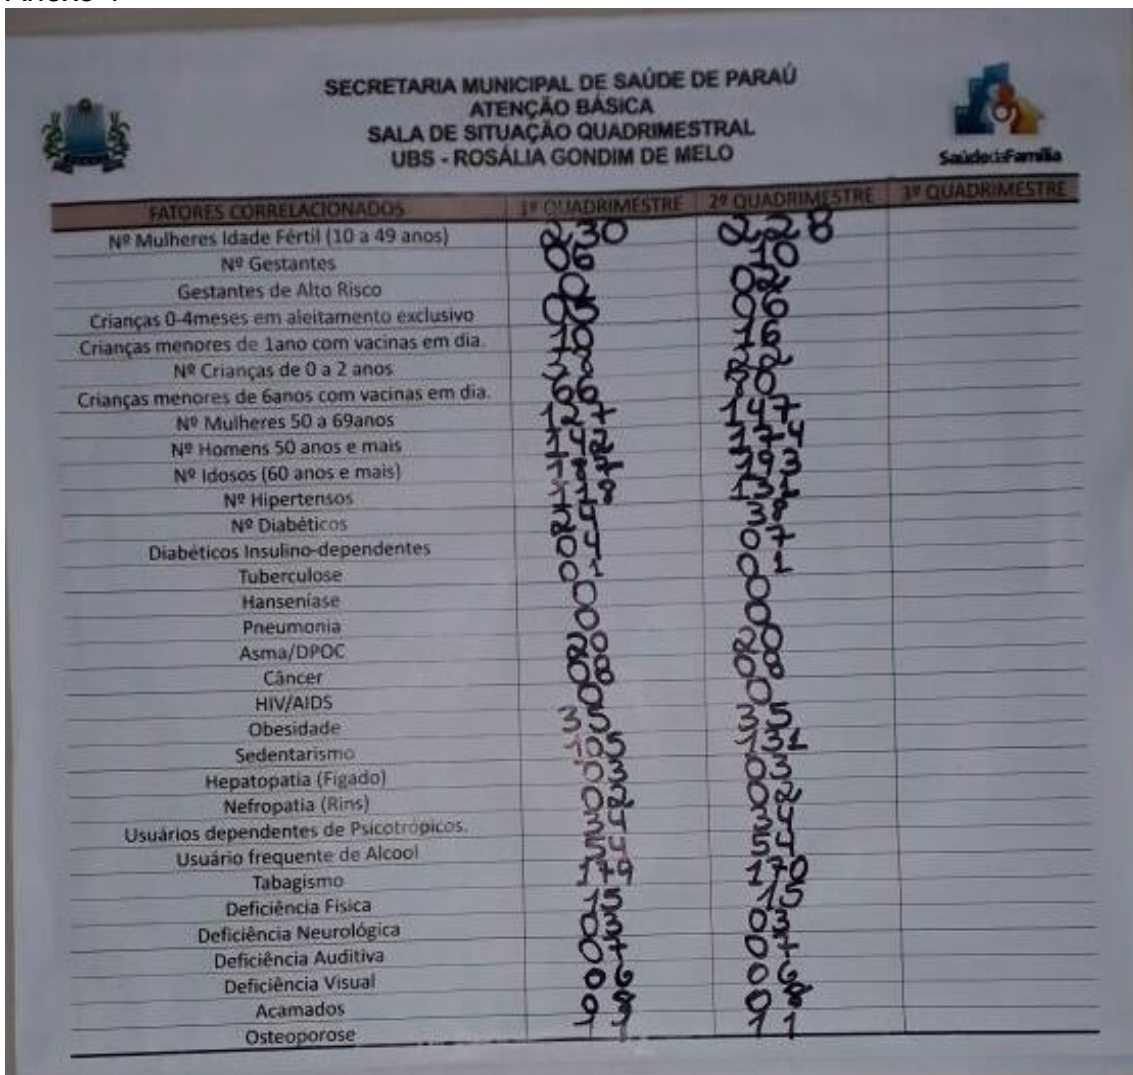 SECRETARIA MUNICIPAL DE SAÚDE DE PARAÚ
ATENÇÃO BÁSICA
SALA DE SITUAÇÃO QUADRIMESTRAL
UBS - ROSÁLIA GONDIM DE MELO
SaúdedaFamília
FATORES CORRELACIONADOS 1º QUADRIMESTRE 2º QUADRIMESTRE 3º QUADRIMESTRE
Nº Mulheres Idade Fértil (10 a 49 anos) 230 228
Nº Gestantes 06 10
Gestantes de Alto Risco 0 02
Crianças 0-4meses em aleitamento exclusivo 05 06
Crianças menores de 1ano com vacinas em dia. 10 16
Nº Crianças de 0 a 2 anos
Crianças menores de 6anos com vacinas em dia. 66 80
Nº Mulheres 50 a 69anos 127 147
Nº Homens 50 anos e mais 142 174
Nº Idosos (60 anos e mais) 193
Nº Hipertensos 118 131
Nº Diabéticos 38
Diabéticos Insulino-dependentes 04 07
Tuberculose 01 01
Hanseníase 0 0
Pneumonia 0 0
Asma/DPOC 0 0
Câncer
HIV/AIDS 0 0
Obesidade 35 35
Sedentarismo 131
Hepatopatia (Figado) 03 03
Nefropatia (Rins) 02 02
Usuários dependentes de Psicotrópicos. 34 34
Usuário frequente de Alcool 54 54
Tabagismo 179 170
Deficiência Fisica 15 15
Deficiência Neurológica 03 03
Deficiência Auditiva 07 07
Deficiência Visual 06 06
Acamados 08 08
Osteoporose 11 11